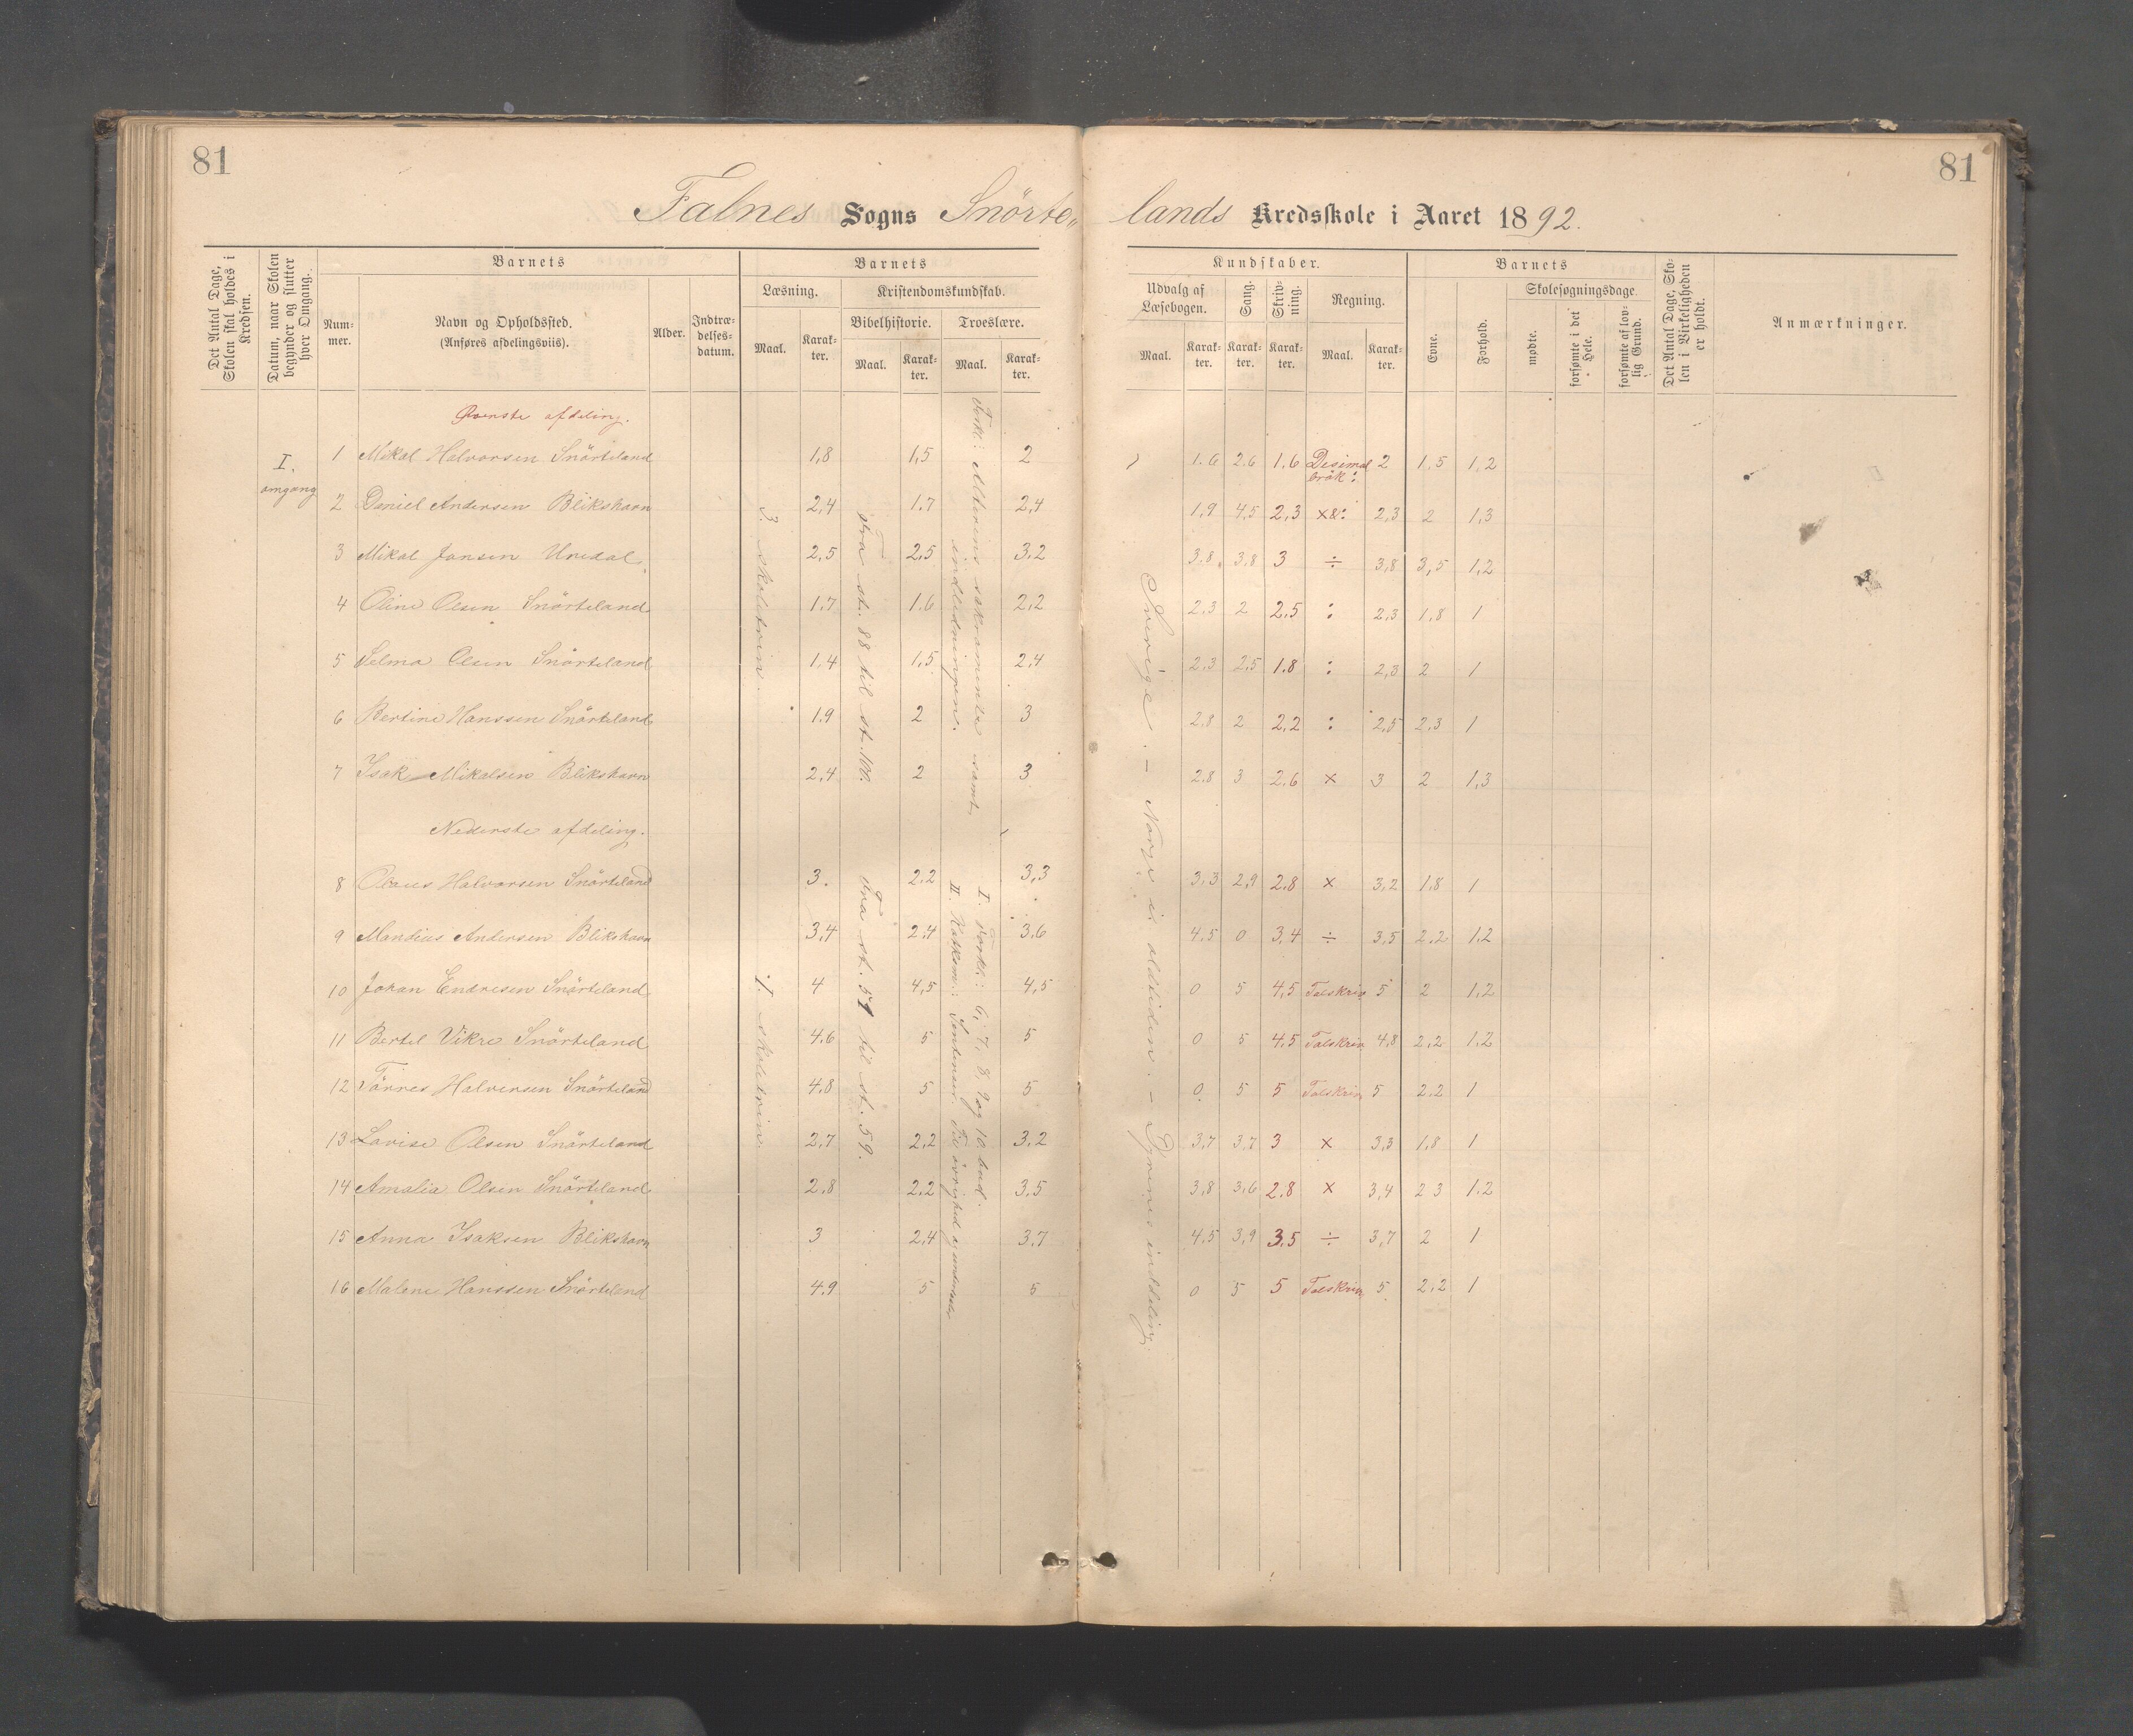 81
81
Falnes Sogns Snörte„ lands Kredsskole i Aaret 1892.
Det Antal Dage, Skolen skal holdes i Kredsen.
Datum, naar Skolen begynder og slutter hver Omgang.
Barnets
Num- mer.
Navn og Opholdssted.
(Anføres afdelingsviis).
Alder.
Indtræ- delses- datum.
Barnets
Læsning.
Maal.
Karak- ter.
Kristendomskundskab.
Bibelhistorie.
Maal.
Karak- ter.
Troeslære.
Maal.
Karak- ter.
Kundskaber.
Udvalg af Læsebogen.
Maal.
Karak- ter.
Sang.
Karak- ter.
Skriv- ning.
Karak- ter.
Regning.
Maal.
Karak- ter.
Barnets
Evne.
Forhold.
Skolesøgningsdage.
mødte.
forsømte i det Hele.
forsømte af lov- lig Grund.
Det Antal Dage, Sko- len i Virkeligheden er holdt.
Anmærkninger.
Øverste afdeling.
I. omgang
1 Mikal Halvorsen Snörteland 1,8 1,5 2 1.6 2.6 1.6 Desimal bråk : 2 1,5 1,2
2 Daniel Andersen Blikshavn 2,4 1.7 2,4 1,9 4,5 2,3 x&: 2,3 2 1,3
3 Mikal Jansen Uredal 2,5 2,5 3.2 3.8 3,8 3 ÷ 3,8 3,5 1,2
4 Oline Olsen Snörteland 1.7 1.6 2,2 2.3 2 2,5 : 2,3 1,8 1
5 Selma Olsen Snörteland 1.4 1,5 2,4 2.3 2,5 1.8 : 2,3 2 1
6 Bertine Hanssen Snörteland 1.9 2 3 2.8 2 2,2 : 2,5 2,3 1
7 Isak Mikalsen Blikshavn 2,4 2 3 2.8 3 2.6 x 3 2 1,3
3. skoletrin.
fra st. 88 til st. 100.
Forkl: Alterens sakramente samt indledningen.
Nederste afdeling.
8 Olaus Halvorsen Snörteland 3. 2.2 3,3 3,3 2,9 2.8 x 3,2 1,8 1
9 Mandius Andersen Blikshavn 3,4 2.4 3.6 4.5 0 3,4 ÷ 3,5 2,2 1,2
10 Johan Endresen Snörteland 4 4,5 4,5 0 5 4,5 Talskriv 5 2 1,2
11 Bertel Vikre Snörteland 4.6 5 5 0 5 4.5 Talskriv 4,8 2,2 1,2
12 Törres Halversen Snörteland 4.8 5 5 0 5 5 Talskriv 5 2.2 1
13 Lovise Olsen Snörteland 2,7 2,2 3.2 3,7 3.7 3 x 3,3 1,8 1
14 Amalia Olsen Snörteland 2,8 2,2 3.5 3,8 3,6 2,8 x 3,4 2 3 1.2
15 Anna Isaksen Blikshavn 3 2,4 3,7 4.5 3,9 3.5 ÷ 3,7 2 1
16 Malene Hanssen Snörteland 4.9 5 5 0 5 5 Talskriv 5 2,2 1
1. skoletrin.
Fra st. 51 til st. 59.
I. Forkl: 6, 7, 8, 9 og 10 bud.
Sverige. – Norge i oldtiden. – Dyrenes inddeling